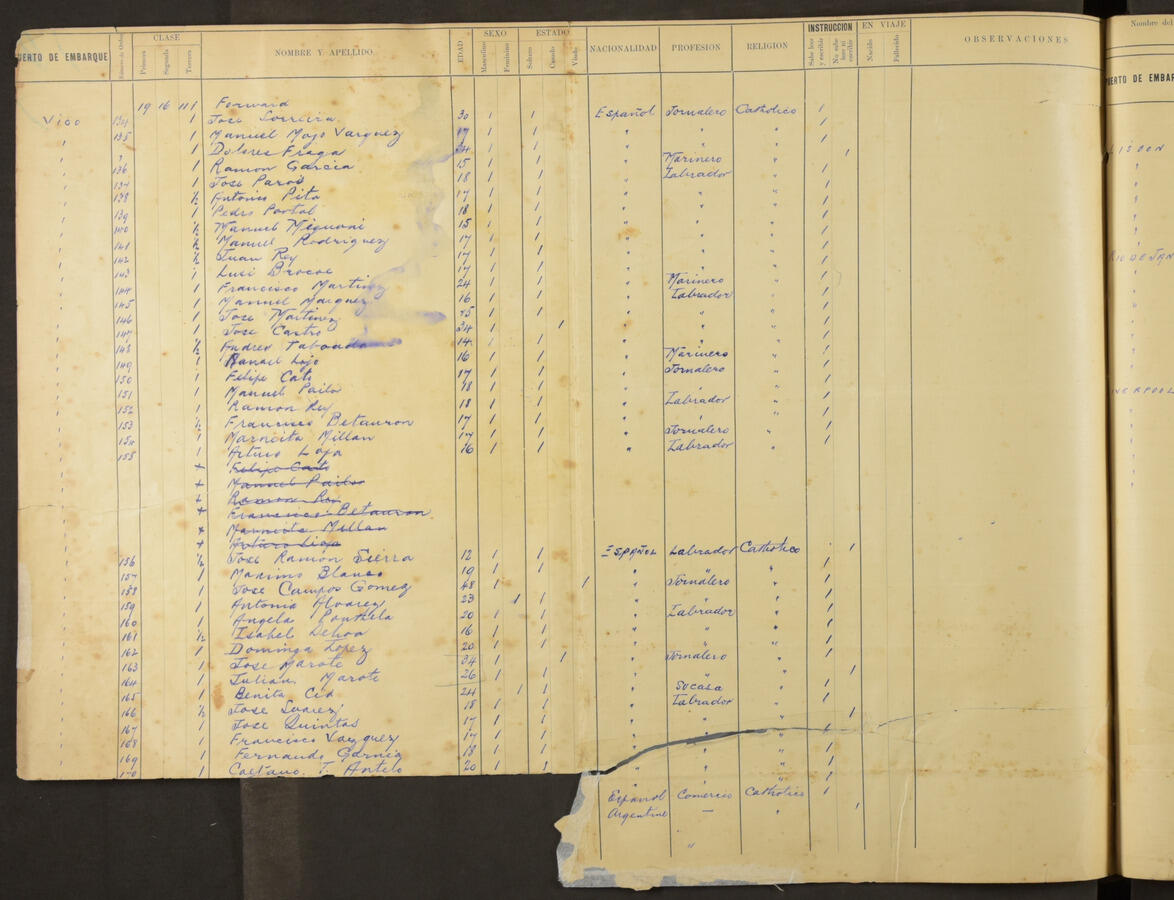 PUERTO DE EMBARQUE Número de Orden CLASE Primera Segunda Tercera NOMBRE Y APELLIDO EDAD SEXO Masculino Femenino ESTADO Soltero Casado Viudo NACIONALIDAD PROFESION RELIGION INSTRUCCION Sabe leer y escribir No sabe leer ni escribir EN VIAJE Nacido Fallecido OBSERVACIONES
19 16 111 Forward
Vigo 134 1 Jose 30 1 1 Español Jornalero Catholico 1
135 1 Manuel Mojo Vazquez 17 1 1 " " "
1 Dolores Fraga 24
136 1 Ramon Garcia 15 Marinero
137 1 Jose 18 Labrador
138 ½ Antonio Pita 17
139 1 Pedro Portal 18
140 ½ Manuel 15
141 ½ Manuel Rodriguez 17
142 ½ Juan Rey 17
143 1 Luis 17
144 1 Francisco Martinez 24 Marinero
145 1 Manuel Marquez 16 Labrador
146 1 Jose Martinez
147 1 Jose Castro 34
148 ½ Andres Taboada 14
149 1 Manuel Lojo 16 Marinero
150 1 Felipe Cato 17 Jornalero
151 1 Manuel Pailos 18
152 1 Ramon Rey 18 Labrador
153 ½ Francisco Betauron 17
154 1 Millan 17 Jornalero
155 1 Arturo Loja 16 Labrador
+ Felipe Cato
+ Manuel Pailos
+ Ramon Rey
+ Francisco Betauron
+ Millan
+ Arturo Loja
156 ½ Jose Ramon Sierra 12 1 1 ESPAÑOL Labrador Catholico 1
157 1 Maximo Blanco 19
158 1 Jose Campos Gomez 48 Jornalero
159 1 Antonia Alvarez 23
160 1 Angela 20 Labrador
161 ½ Isabel 16
162 1 Dominga Lopez 20
163 1 Jose Marote 34 Jornalero
164 1 Julian Marote 26
165 1 Benita Cid 24 SUCASA
166 ½ Jose Suarez 18 Labrador
167 1 Jose Quintas 17
168 1 Francisco Vazquez 17
169 1 Fernando 18
170 1 Caetano T. Antelo 20
Español Comercio Catholico 1
Argentine — "
Nombre del
PUERTO DE EMBAR
LISBON
RIO DE JAN
VERPOOL